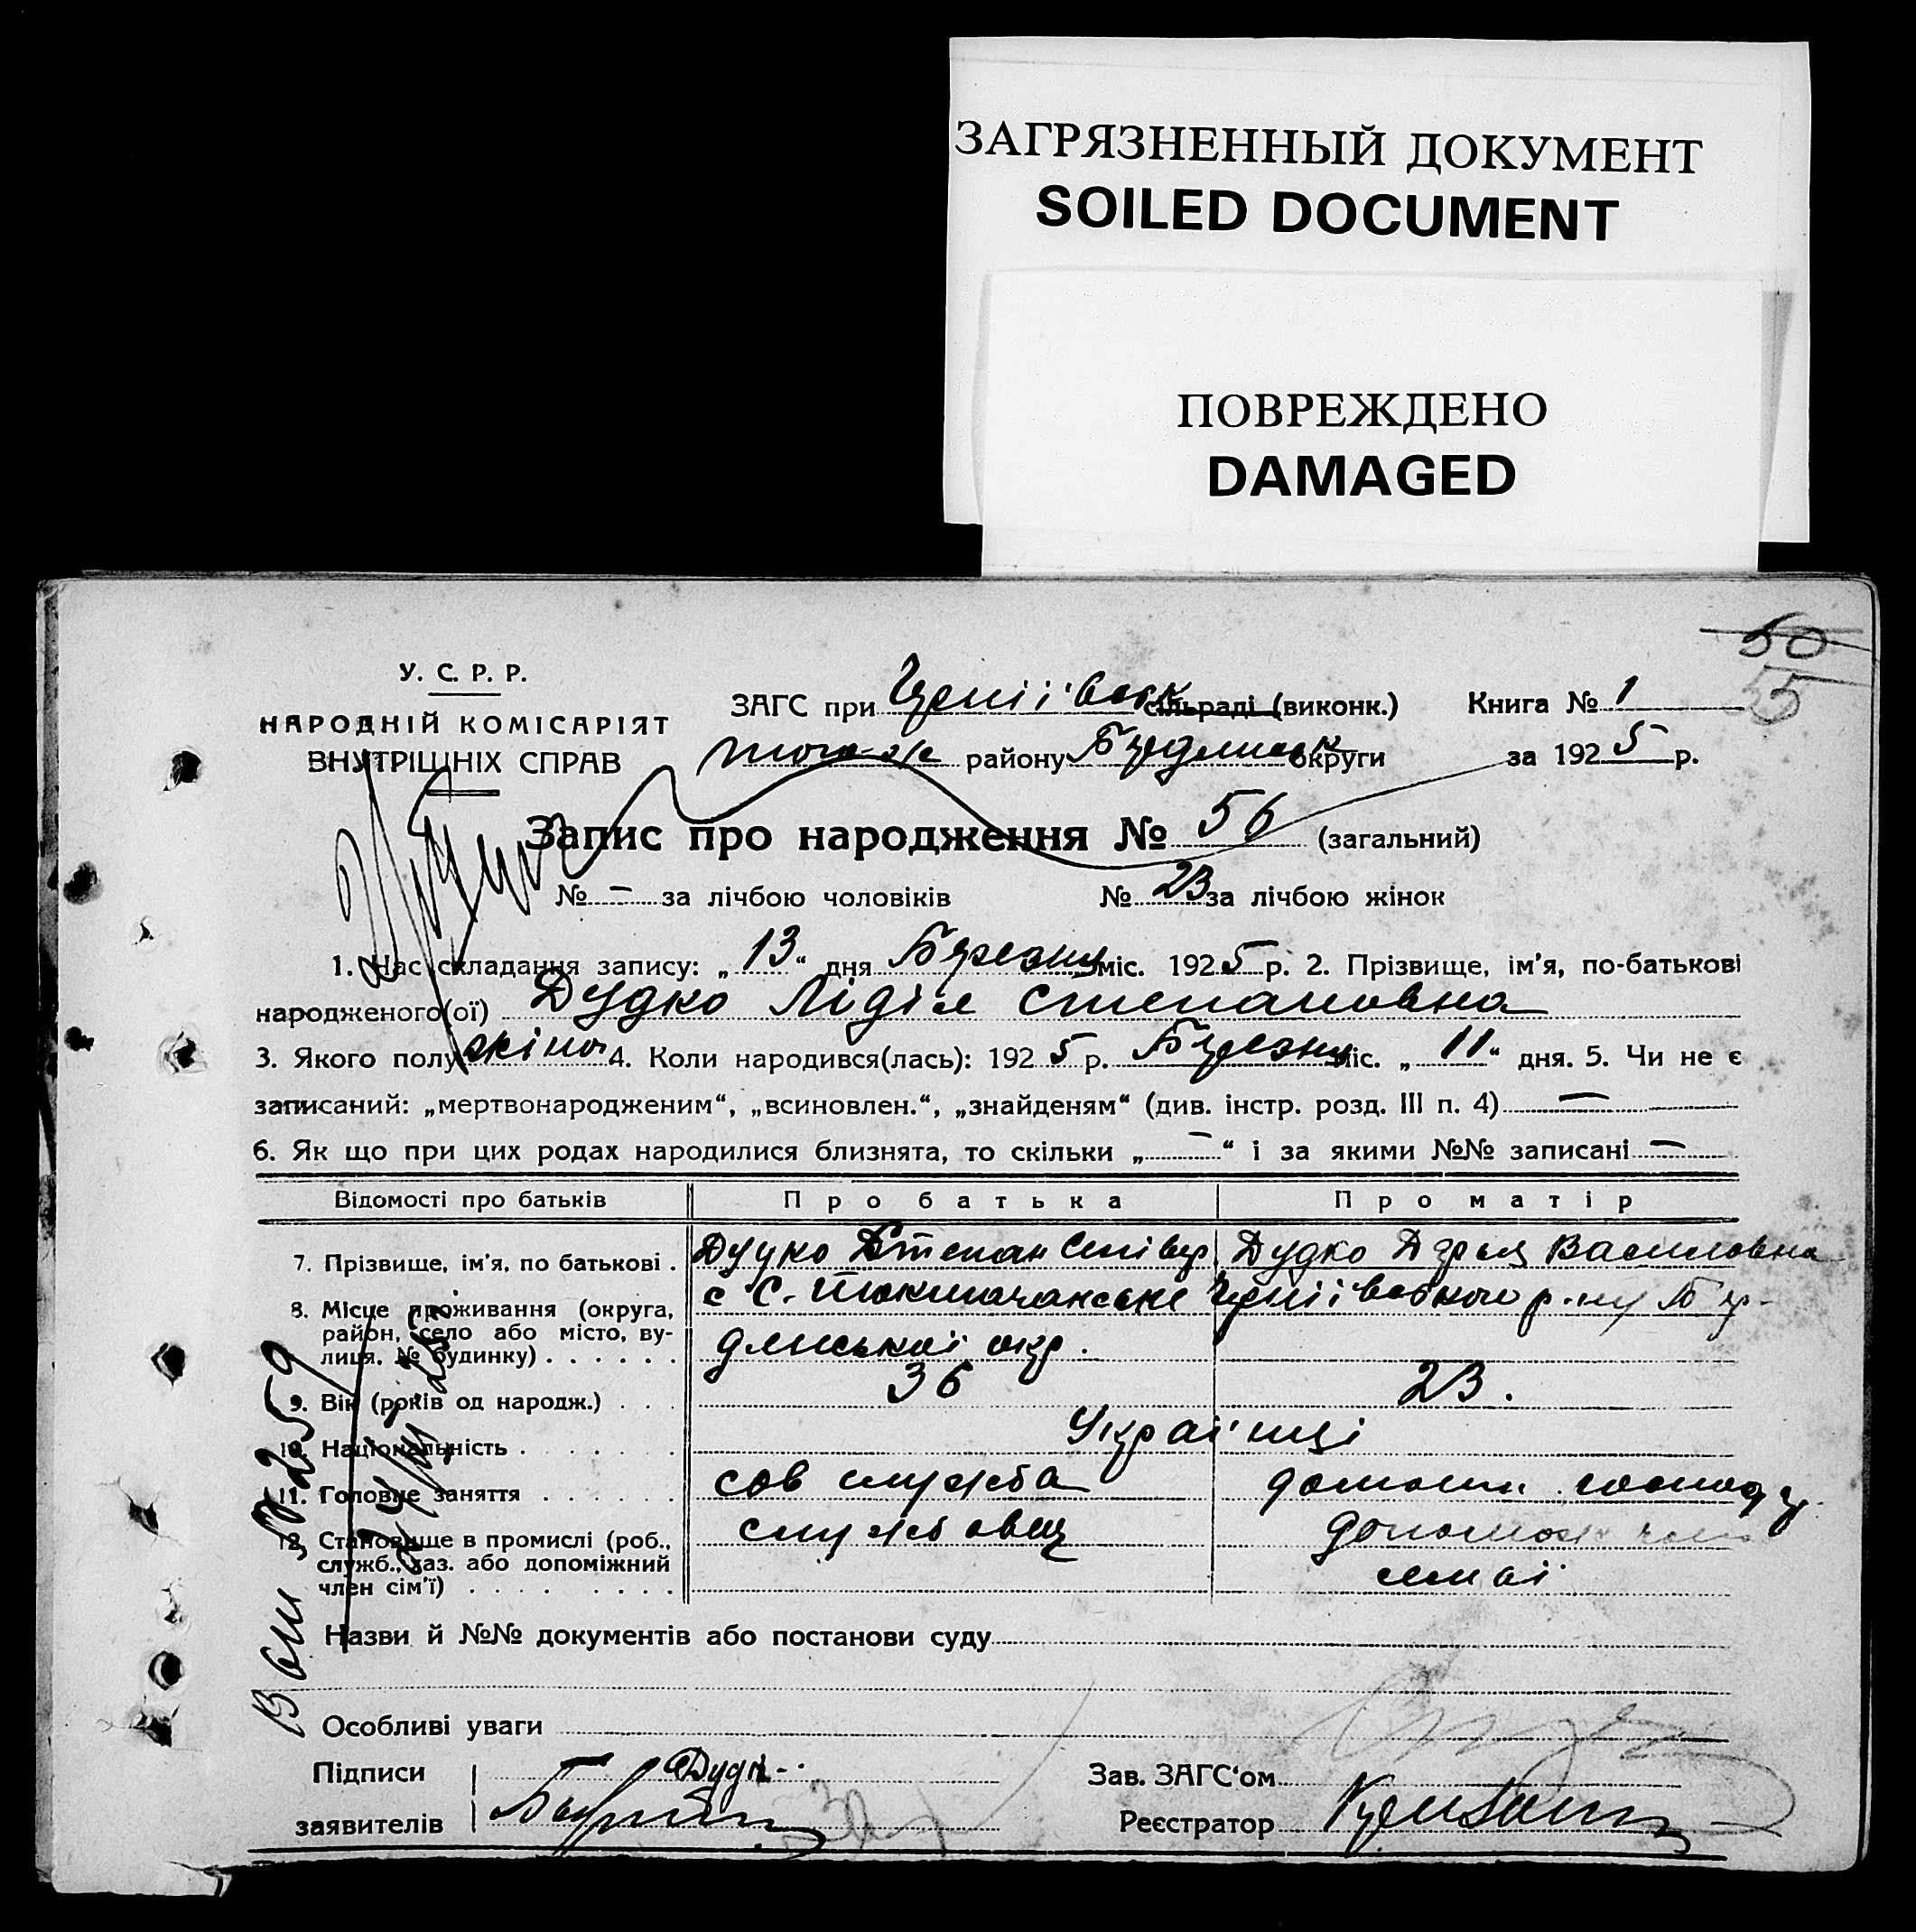 ЗАГРЯЗНЕННЫЙ ДОКУМЕНТ
SOILED DOCUMENT
ПОВРЕЖДЕНО
DAMAGED
50
55
У. С. Р. Р.
НАРОДНІЙ КОМІСАРІЯТ
ВНУТРІШНІХ СПРАВ
ЗАГС при сільраді (виконк.) Книга № 1
того-ж району округи за 1925 р.
Запис про народження № 56 (загальний)
№ – за лічбою чоловіків № 23 за лічбою жінок
1. Час складання запису: „13“ дня Березня міс. 1925 р. 2. Прізвище, ім'я, по-батькові
народженого(ої) Дудко Лідія Степановна
3. Якого полу жіноч 4. Коли народився(лась): 1925 р. Березня міс. „11“ дня. 5. Чи не є
записаний: „мертвонародженим“, „всиновлен.“, „знайденям“ (див. інстр. розд. III п. 4) —
6. Як що при цих родах народилися близнята, то скільки „–“ і за якими №№ записані —
Відомості про батьків Про батька Про матір
7. Прізвище, ім'я, по батькові . Дудко Степан Дудко Василовна
8. Місце проживання (округа,
район, село або місто, ву-
лиця. № будинку) . . . . . . длиської окр.
9. Вік (років од народж.) . . . 36 23.
10. Національність . . . . . . Українці
11. Головне заняття . . . . . . сов служба
12. Становище в промислі (роб.,
служб., хаз. або допоміжний
член сім'ї) . . . . . . . . . службовец
Назви й №№ документів або постанови суду
Особливі уваги
Підписи Зав. ЗАГС'ом
заявителів Реєстратор